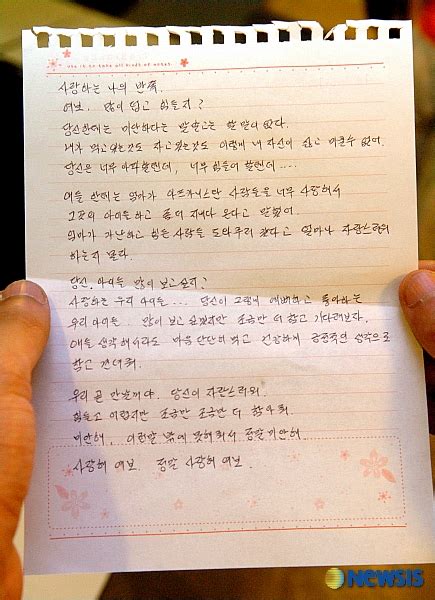 사랑하는 나의 반쪽.
여보. 많이 덥고 힘들지?
당신한테는 미안하다는 말밖에는 할 말이 없다.
내가 먹고있는것도 자고있는것도 이렇게 내 자신이 싫고 미울수 없어.
당신은 너무 아파할텐데, 너무 힘들어 할텐데....
애들 한테는 엄마가 아프가니스탄 사람들을 너무 사랑해서
그곳의 아이들하고 좀 더 지내다 온다고 말했어.
엄마가 가난하고 힘든 사람들 도와주러 갔다고 얼마나 자랑스러워
하는지 몰라.
당신, 아이들 많이 보고싶지?
사랑하는 우리 아이들... 당신이 그렇게 예뻐하고 좋아하는
우리 아이들.. 많이 보고 싶겠지만 조금만 더 참고 기다려보자.
애들 생각해서라도 마음 단단히 먹고 건강하게 긍정적인 생각으로
참고 견뎌줘.
우리 곧 만날꺼야. 당신이 자랑스러워.
힘들고 어렵지만 조금만 조금만 더 참아줘.
미안해, 이런말 밖에 못해줘서 정말 미안해.
사랑해 여보. 정말 사랑해 여보.
NEWSIS